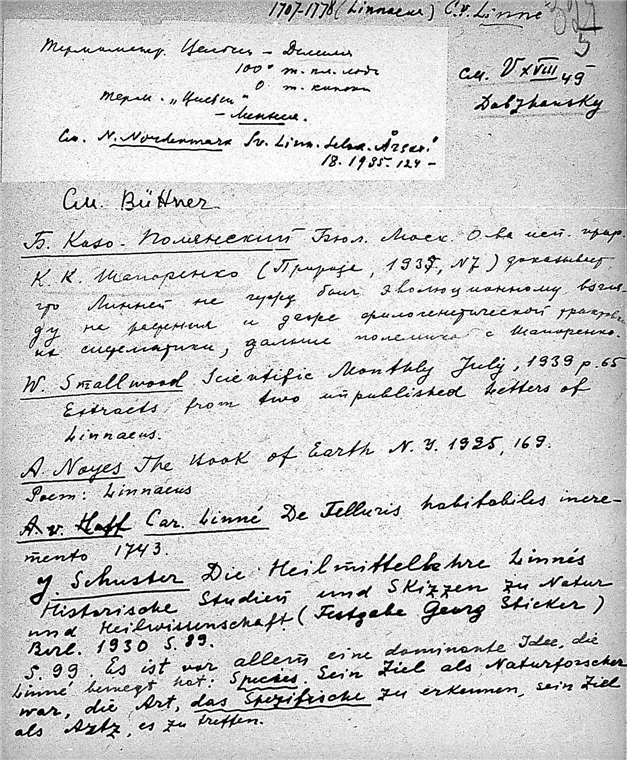 1707-1778 (Linnaeus) C.v. Linné
Термометр. Цельсия – Делиля
100° т. пл. льда
0 т. кипения
терм. „Цельсия"
– Линнея.
См. N. Nordenmark Sv. Linn. Årsskr.
18. 1935. 124 –
см. V XVIII 49
Dobzhansky
См. Büttner
Б. Козо-Полянский Бюл. Моск. О-ва исп. прир.
К. К. Шапоренко (Природе, 1937, N7) доказывает
что Линней не чужд был эволюционному взгля-
ду на растения и даже филогенетической трактов
ке систематики, дальше полемика с Шапоренко.
W. Smallwood Scientific Monthly July, 1939 p. 65
Extracts from two unpublished letters of
Linnaeus.
A. Noyes The Book of Earth N. Y. 1925, 169.
Poem: Linnaeus
A. v. Hoff Car. Linné De Telluris habitabiles incre-
mento 1743.
J. Schuster Die Heilmittellehre Linnés
Historische Studien und Skizzen zu Natur
und Heilwissenschaft (Festgabe Georg Sticker)
Berl. 1930 S. 89.
S. 99. Es ist vor allem eine dominante Idee, die
Linné bewegt hat: Species. Sein Ziel als Naturforscher
war, die Art, das Spezifische zu erkennen, sein Ziel
als Aztz, es zu treffen.